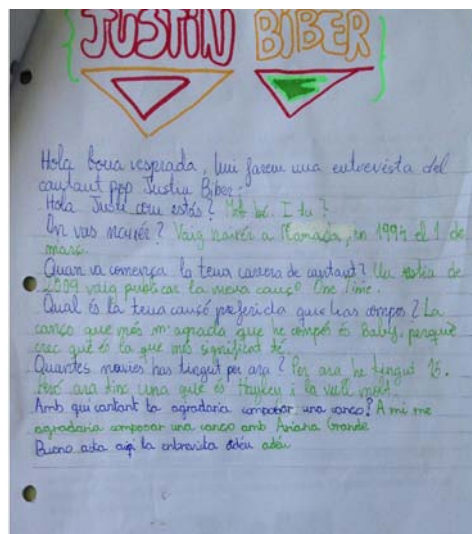 JUSTIN BIBER
Hola bona vesprada, hui farem una entrevista del
cantant pop Justin Biber.
Hola Justi com estàs? Molt bé. I tu?
On vas naixér? Vaig naixér aКанada, en 1994 el 1 de
març.
Quan va comença la teua carrera de cantant? Un estiu de
2009 vaig publicar la meva canço One Time.
Qual és la teua cansó preferida que has compos? La
canço que més m'agrada que he compós és Baby, perquè
crec què és la que més significat té.
Quantes novies has tingut per ara? Per ara he tingut 15.
Però ara tinc una que és Hayley i la vull molt.
Amb qui cantant ta agradaria composar una canco? A mi me
agradaria composar una canco amb Ariana Grande
Bueno asta aqi la entrevista adéu adéu